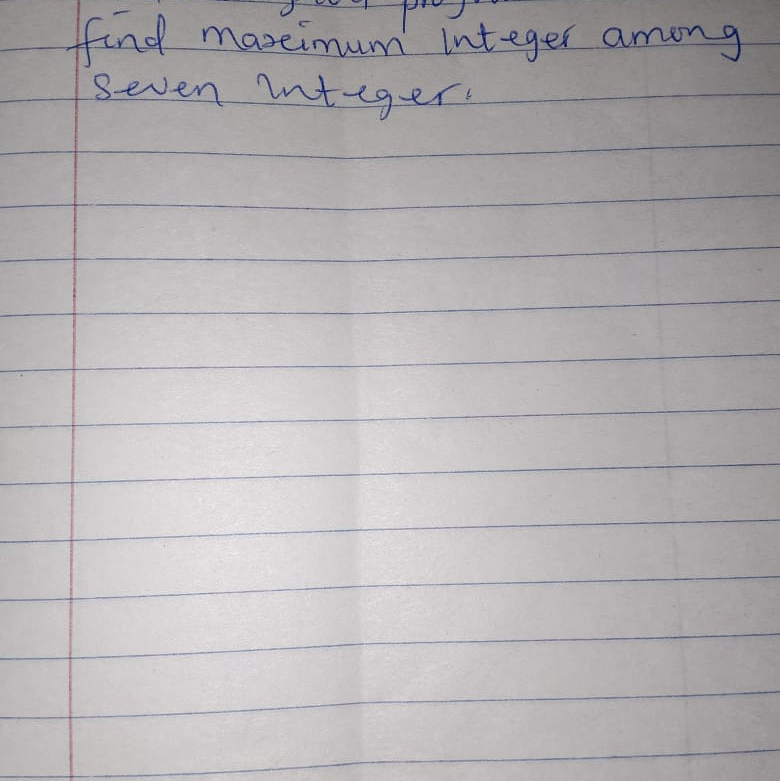 find maximum Integer among
seven Integer.